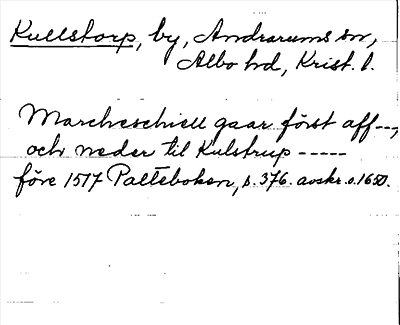 Kullstorp, by, Andrarums sn,
Albo hd, Krist. l.
Marcheschiell gaar först aff--,
och neder til Kulstrup -----
före 1517 Palteboken, s. 376. avskr. o. 1650.